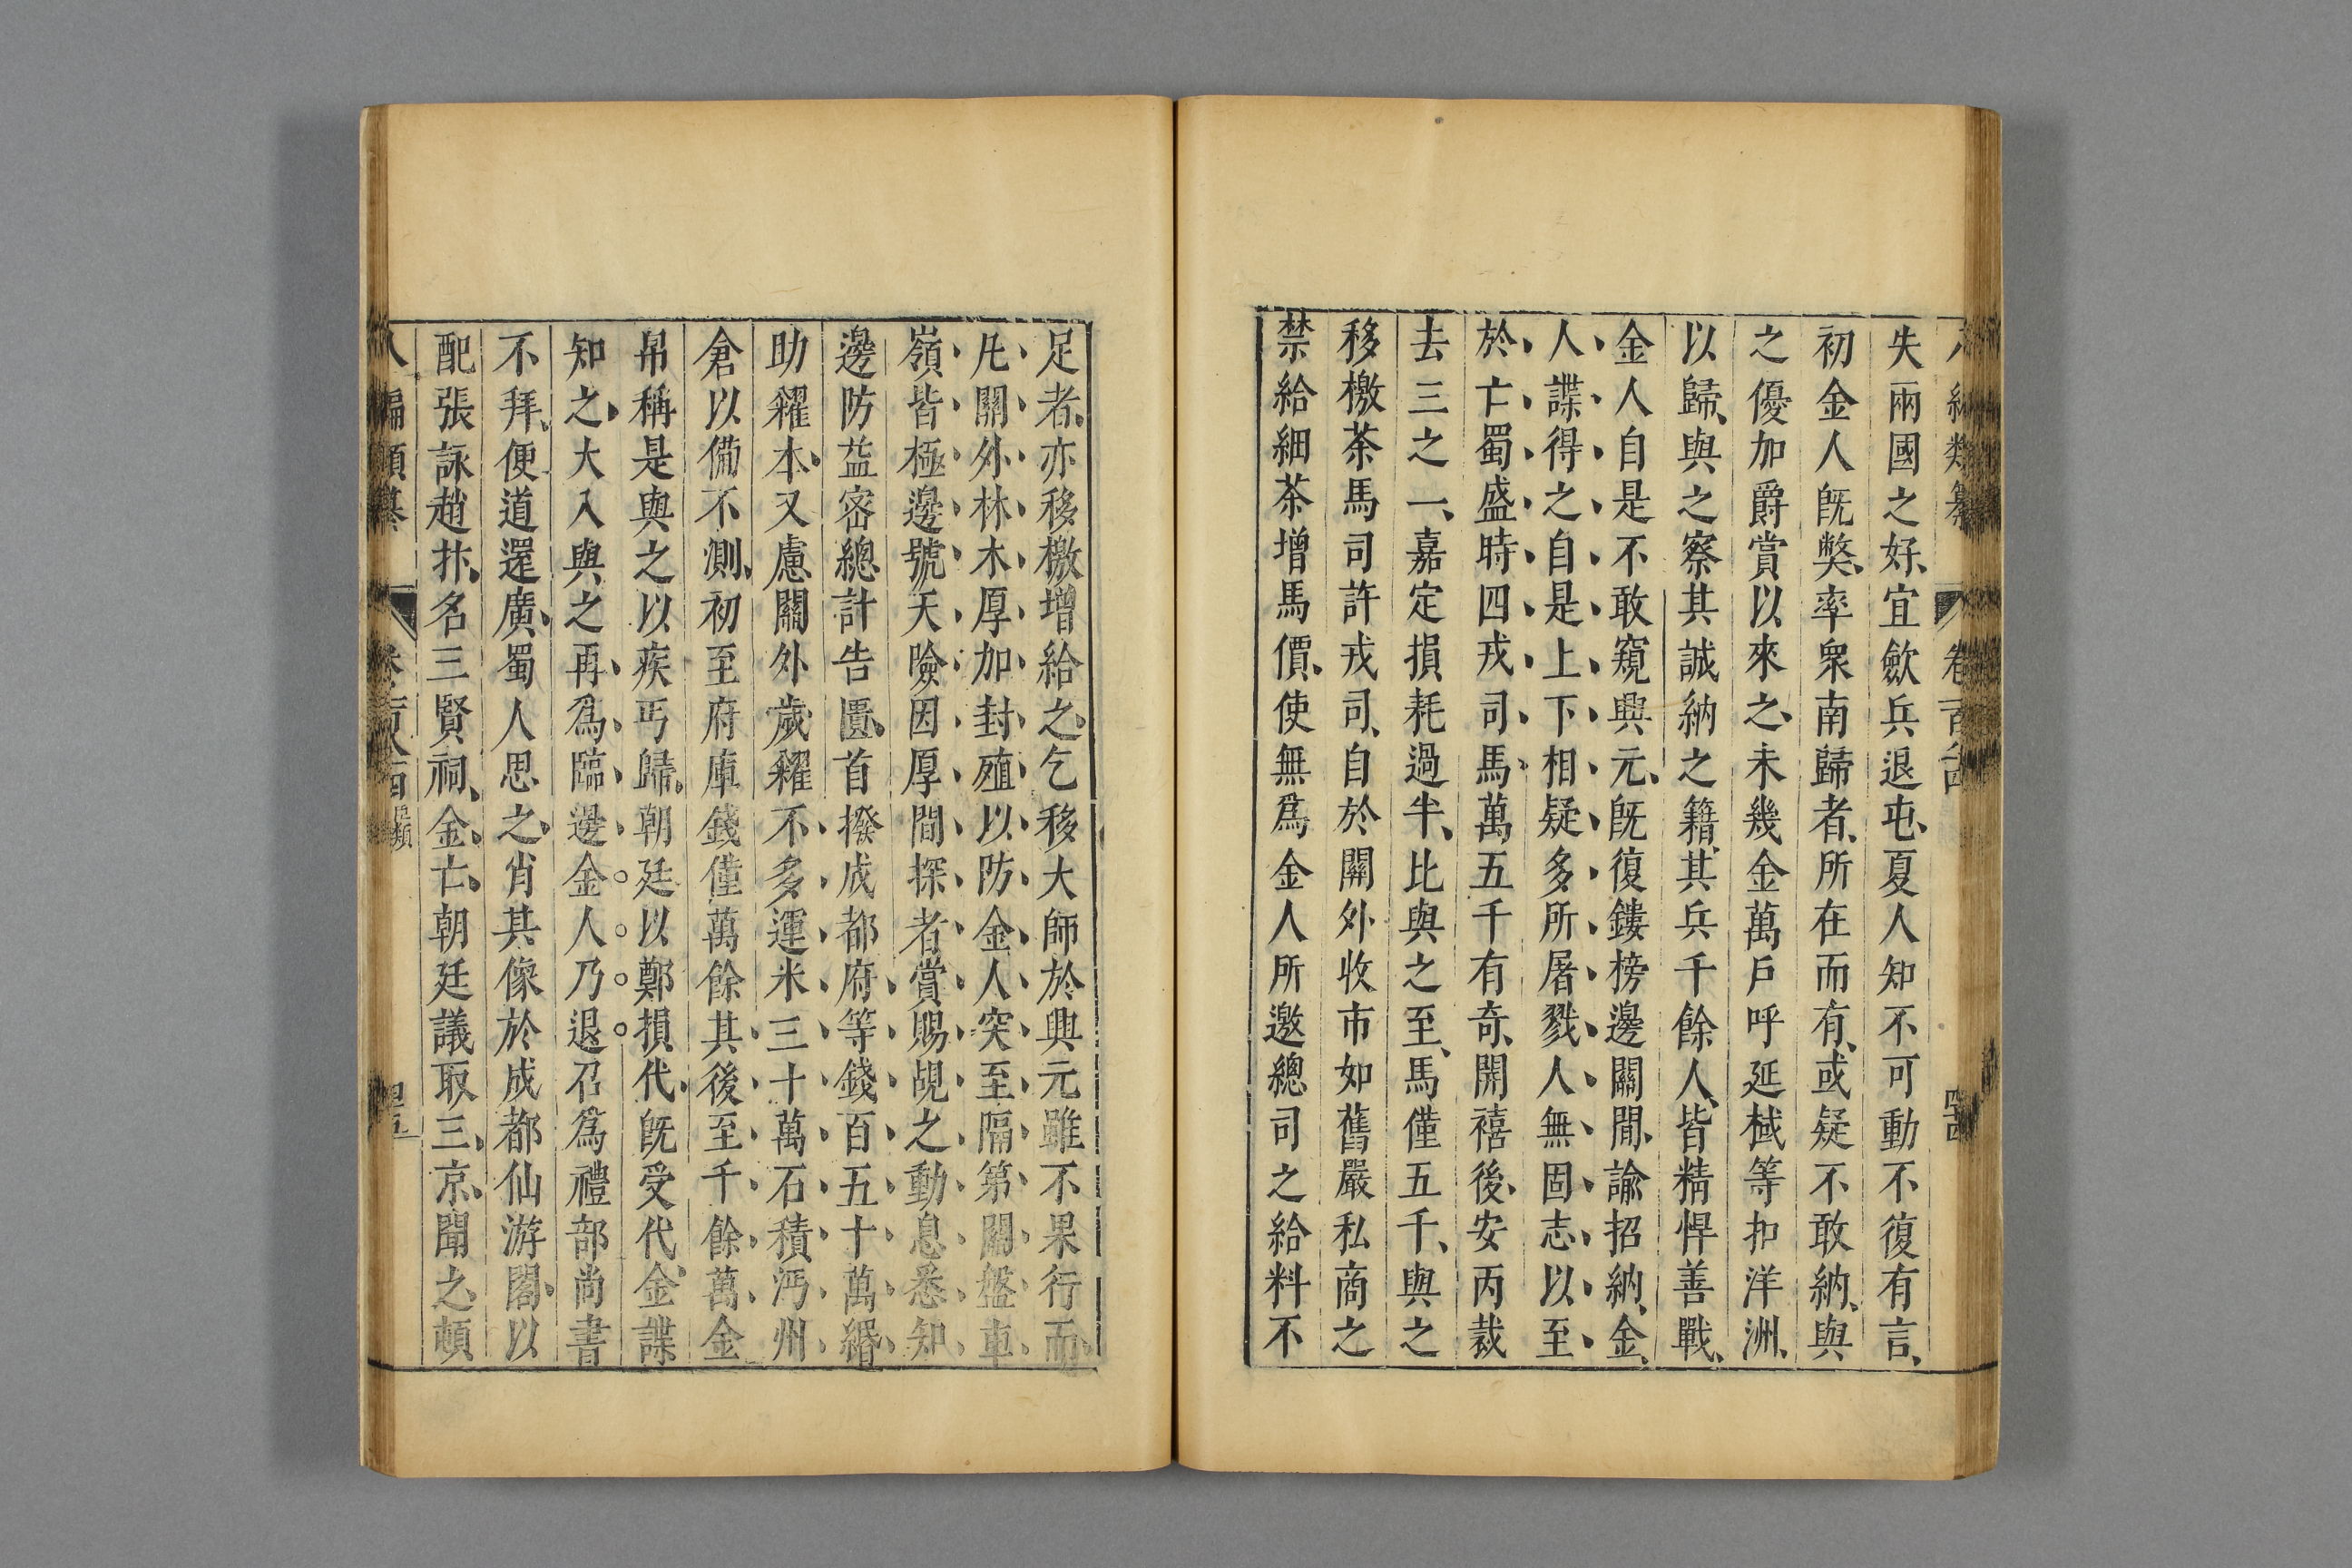 失兩國之好、宜歛兵退屯、夏人知不可動不復有言、
初金人旣獘、率衆南歸者、所在而有、或疑不敢納、與
之優加爵賞以來之、未幾金萬戶呼延棫等扣洋洲、
以歸、與之察其誠納之籍、其兵千餘人、皆精悍善戰、
金人自是不敢窺興元、旣復鏤榜邊關間、諭招納、金
人諜得之自是上下相疑多所屠戮人無固志以至
於亡蜀盛時四戎司馬萬五千有奇、開禧後、安丙裁
去三之一、嘉定損耗過半、比與之至、馬僅五千、與之
移檄茶馬司許戎司、自於關外收市如舊嚴私商之
禁給細茶增馬價、使無爲金人所邀總司之給料不
足者、亦移檄增給之、乞移大師於興元雖不果行而
凡關外林木厚加封殖以防金人突至隔第關盤車
嶺皆極邊號天險因厚間探者賞賜覘之動息悉知
邊防益密總計告匱、首撥成都府等錢百五十萬緡
助糴本、又慮關外歲糴不多運米三十萬石積沔州
倉以備不測、初至府庫錢僅萬餘其後至千餘萬金
帛稱是與之以疾丐歸、朝廷以鄭損代、旣受代、金諜
知之、大入與之再爲臨邊金人乃退召爲禮部尚書
不拜、便道還廣、蜀人思之、肖其像於成都仙游閣、以
配張詠趙抃、名三賢祠、金亡、朝廷議取三京、聞之、頓